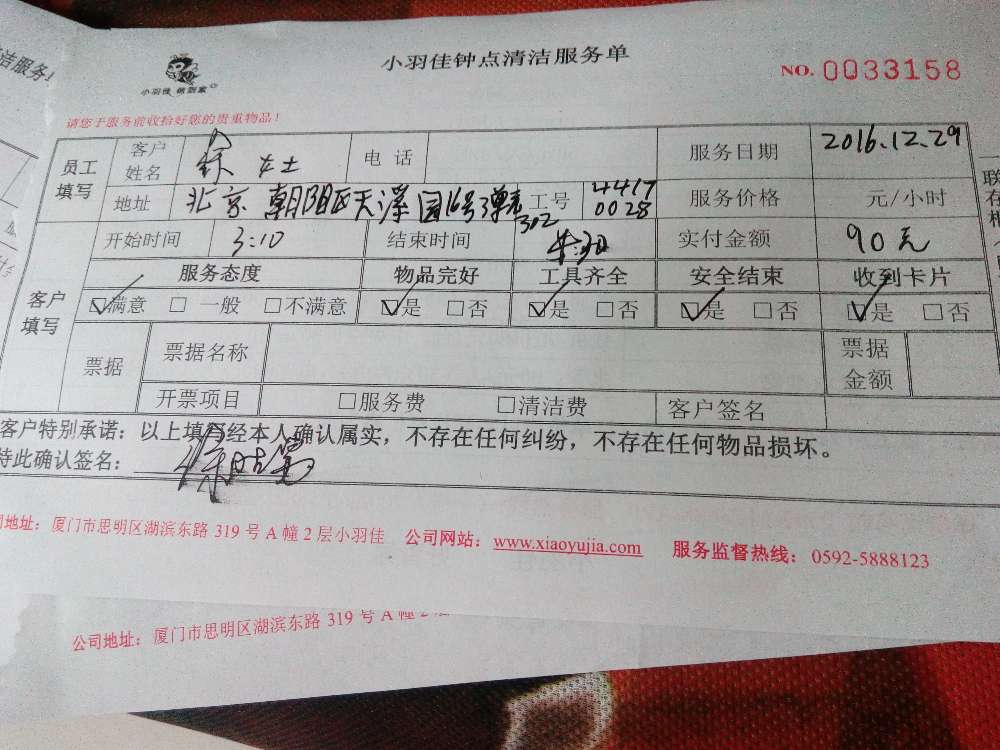 洁服务!
小羽佳钟点清洁服务单
小羽佳 做到家
NO. 0033158
请您于服务前收拾好您的贵重物品!
员工填写 客户姓名 女士 电 话 服务日期 2016.12.29
地址 北京 朝阳区天泽园16号 302 工号 4417 0028 服务价格 元/小时
开始时间 3:10 结束时间 实付金额 90元
客户填写 服务态度 物品完好 工具齐全 安全结束 收到卡片
☑满意 □ 一般 □不满意 ☑是 □否 ☑是 □否 ☑是 □否 ☑是 □否
票据 票据名称 票据金额
开票项目 □服务费 □清洁费 客户签名
客户特别承诺:以上填写经本人确认属实,不存在任何纠纷,不存在任何物品损坏。
特此确认签名:
司地址:厦门市思明区湖滨东路 319 号 A 幢 2 层小羽佳 公司网站:www.xiaoyujia.com 服务监督热线:0592-5888123
公司地址:厦门市思明区湖滨东路 319 号 A 幢 2 层